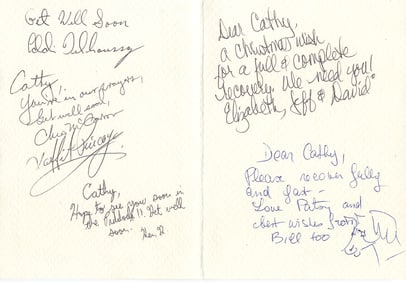 Get Well Soon
Cathy,
You're in our prayers,
Get well soon,
Cathy,
Hope to see you soon in
the !! Get well
soon.
Dear Cathy,
a Christmas wish
for a full & complete
recovery. We need you!
Elizabeth, Jeff & David
Dear Cathy,
Please recover fully
and fast -
Love Patsy and
best wishes from
Bill too